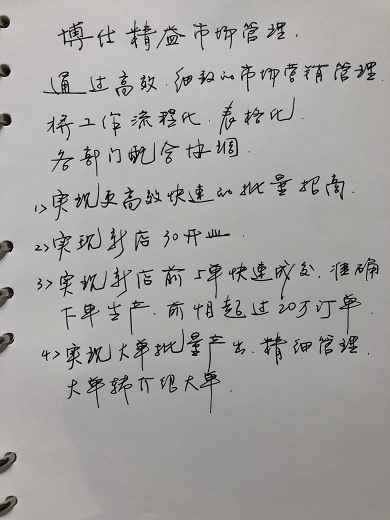 博仕精益市场管理.
通过高效.细致的市场营销管理.
将工作流程化.表格化.
各部门配合协调.
1>实现更高效快速的批量招商.
2>实现新店30开业.
3>实现新店前5单快速成交.准确
下单生产.前月起过20万订单.
4>实现大单批量产出.精细管理.
大单转介绍大单.